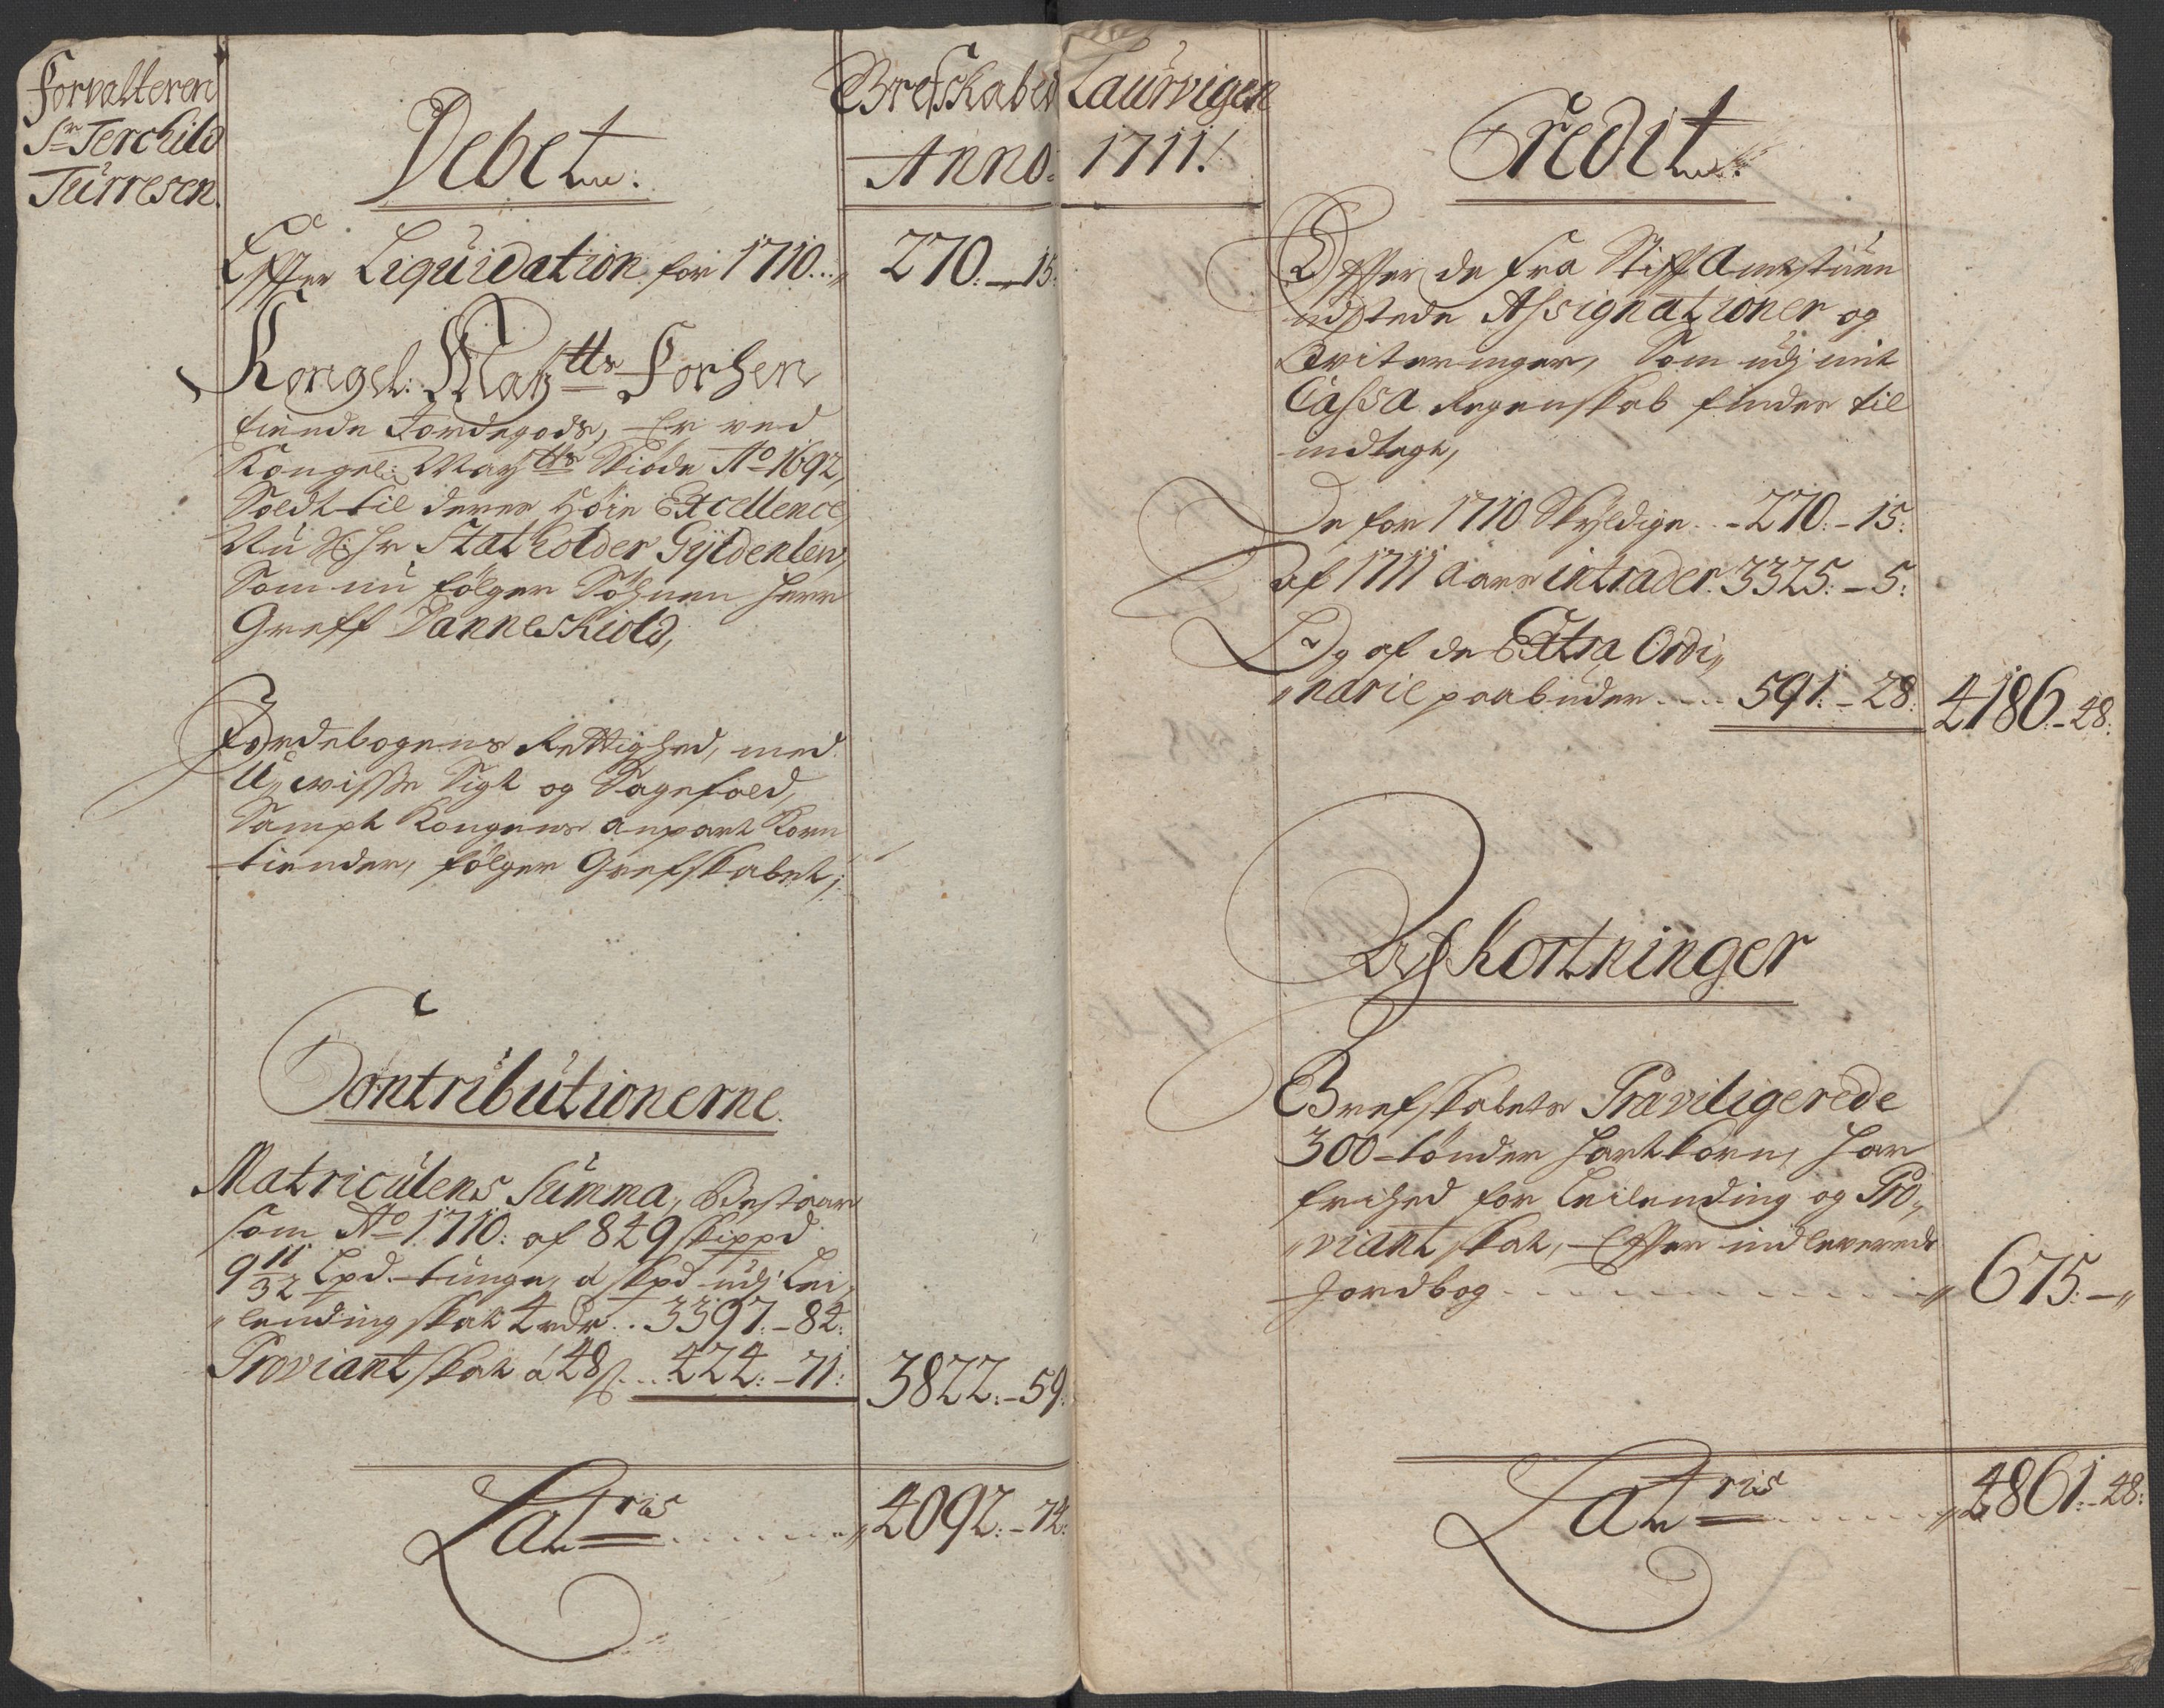 Forvalteren
Sr Terchild
Turresen.
Grefskabed Laurvigen
Anno. 1711.
Debet.
Effter Liquidation for 1710... 270. - 15.
Kongel: Mayts Forhen
tiende Jordegods, Er ved
Kongel: Mayts Skiöde Ao 1692,
Soldt til deres Höie Excellence
Nu Statholder Gyldenlev,
Som nu fölger Söhnen Herr
Greff Danneskiold,
Jordebogens Rettighed, med
U,,wisse Sigt og Sagefald,
Sampt Kongens anpart Korn
tiender, fölger Grefskabet;
Contributionerne.
Matriculens Summa, Bestaar
som Ao 1710: af 849 skippd
9 11/32 Lpd. tunge, á skpd udj Lei,,
,,lending skat 4 rdr .. 3397. - 84.
Proviant skat á 48 s ... 424: - 71: 3822: - 59.
Latris ...... 4092: - 74:
Credit.
Effter de fra StifftAmbtstuen
udstede Assignationer og
Qviteringer, Som udj mit
Cassa Regenskab findes til
indtegt,
De for 1710 Skyldige .. 270: - 15:
Af 1711 Aars intrader. 3325: - 5:
Og af de Extra Ordi,,
,,narie paabuder .... 591: - 28: 4186. - 48:
Afkortninger
Grefskabets Præviligerede
300 tönder Hartkorn, har
frihed for Leilending og Pro,,
,,viant skat, Effter indleverede
Jordbog ........ 675: - ,,
Latris ...... 4861: - 48: